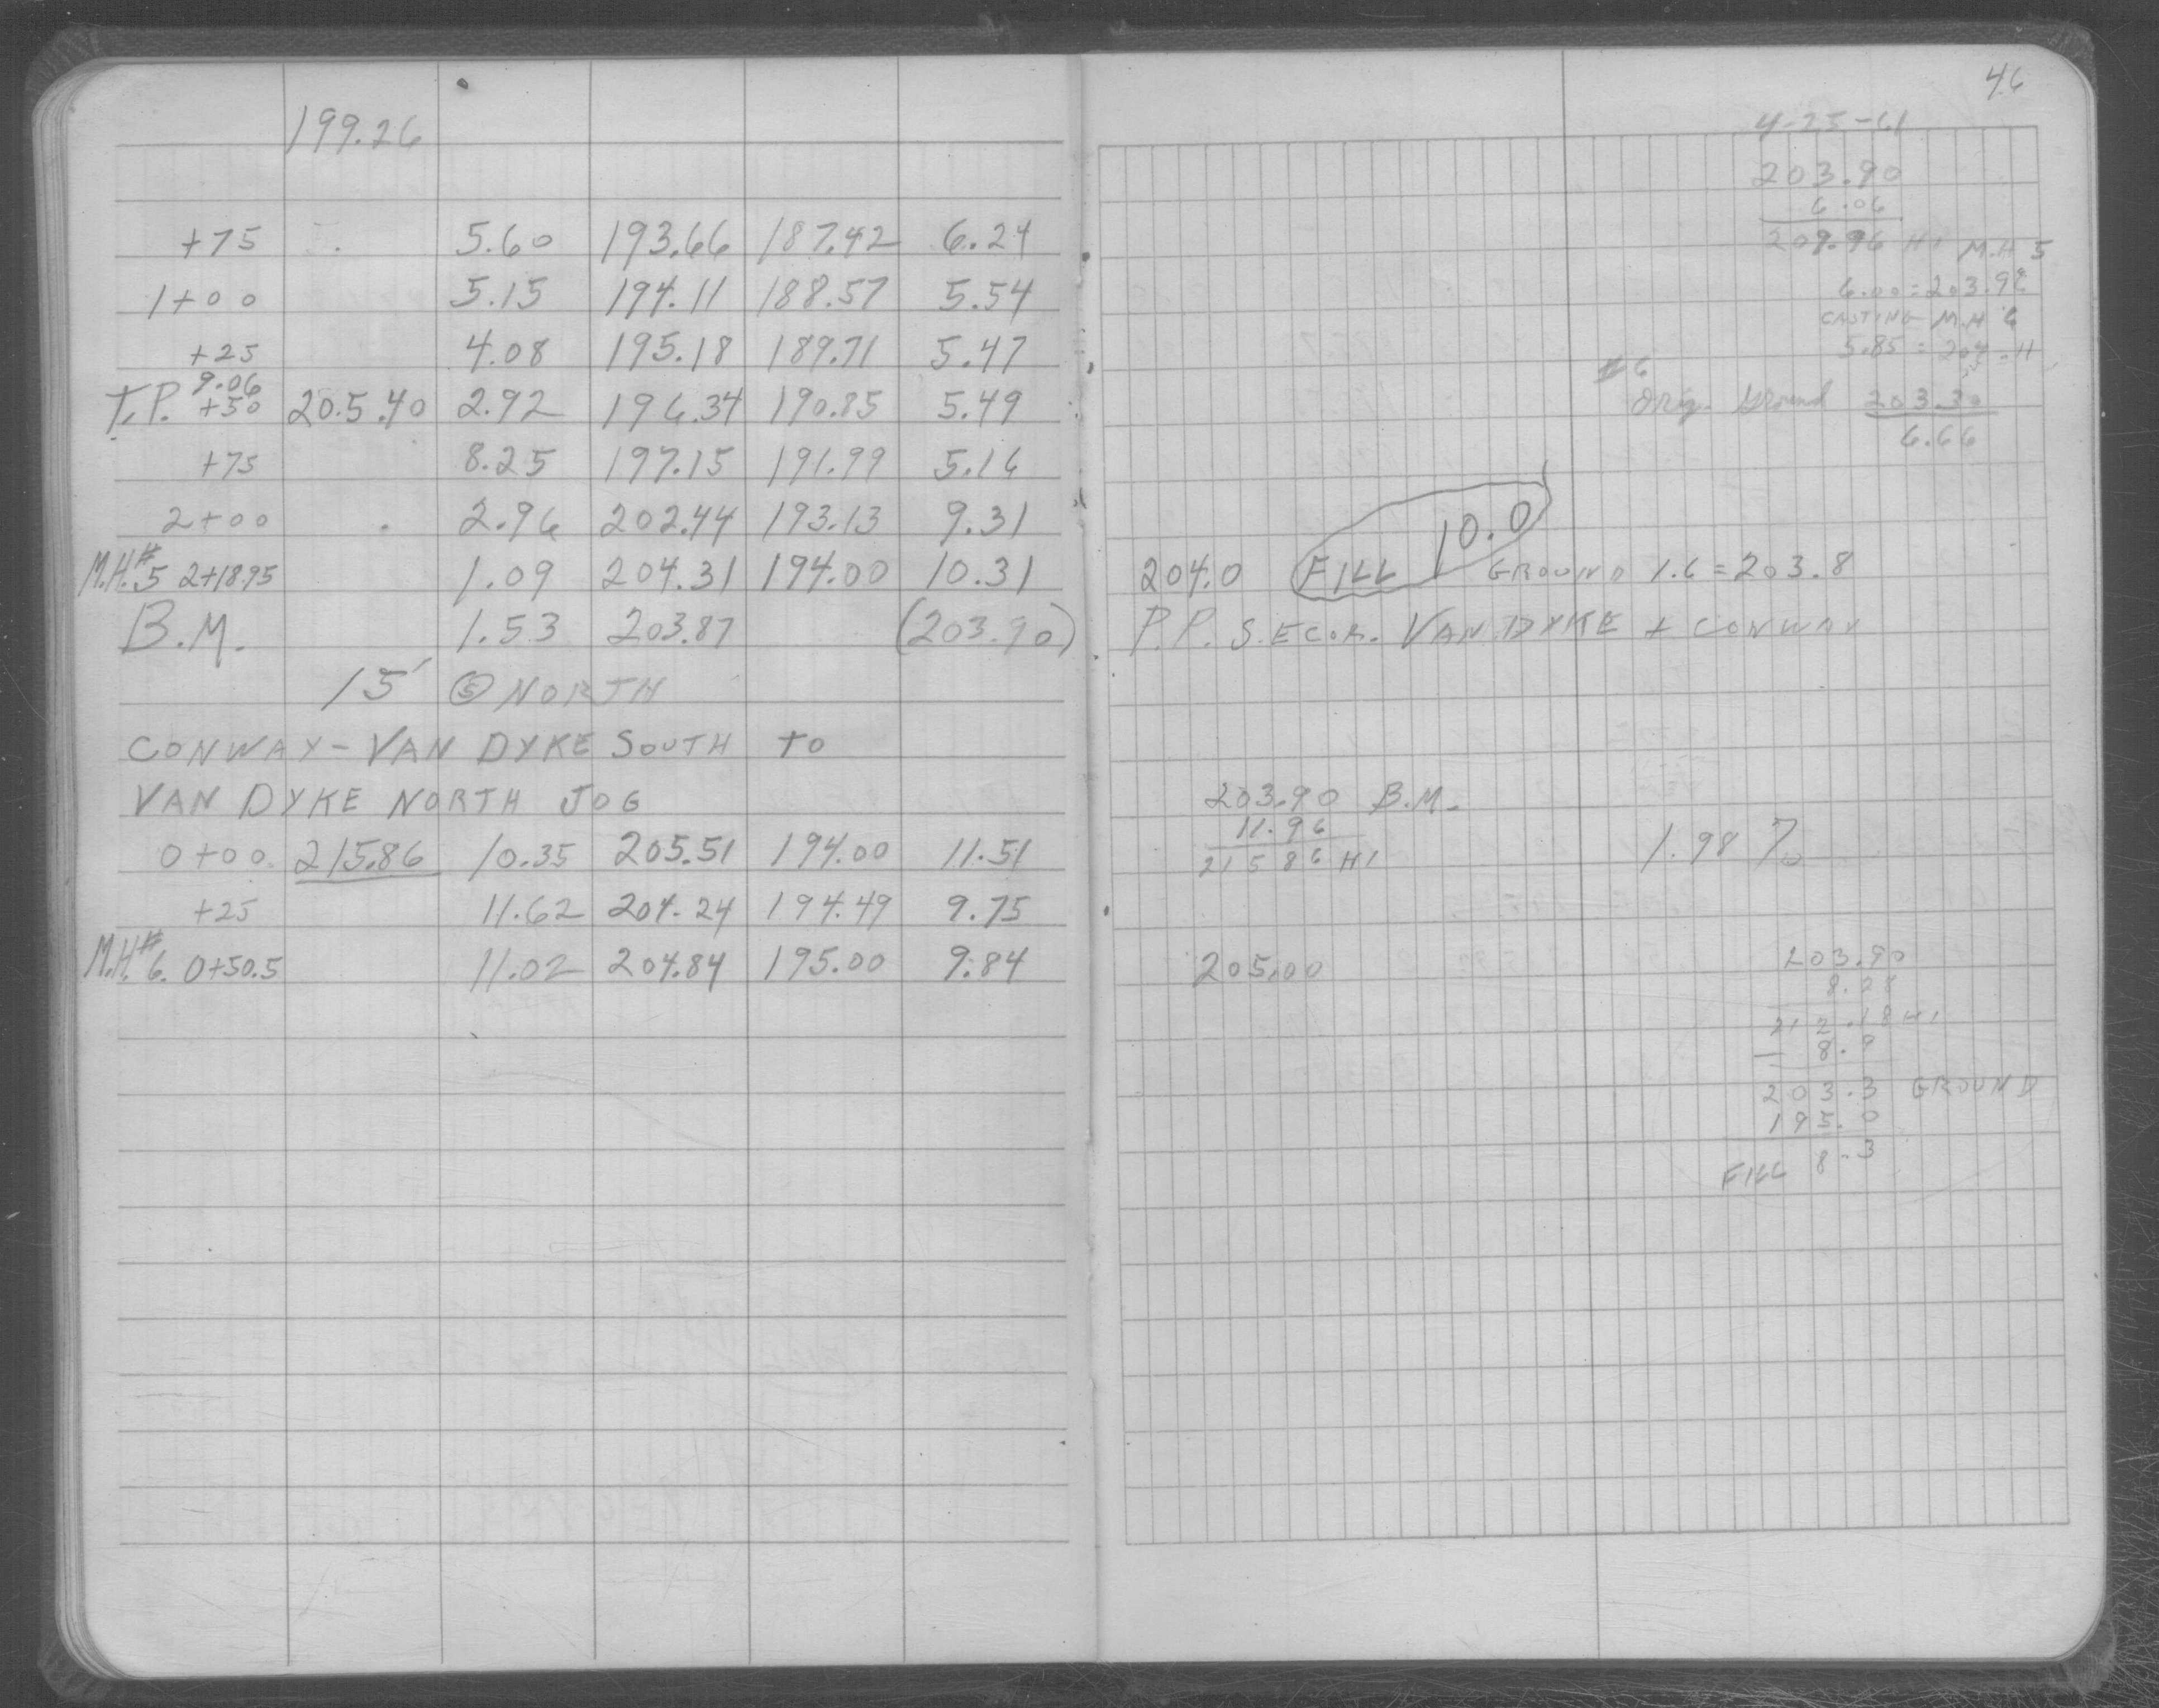 199.26
+75 5.60 193.66 187.42 6.24
1+00 5.15 194.11 188.57 5.54
+25 4.08 195.18 189.71 5.47
9.06
T.P. +50 205.40 2.92 196.34 190.85 5.49
+75 8.25 197.15 191.99 5.16
2+00 2.96 202.44 193.13 9.31
M.H.#5 2+18.95 1.09 204.31 194.00 10.31
B.M. 1.53 203.87 (203.90)
15' @ NORTH
CONWAY - VAN DYKE SOUTH TO
VAN DYKE NORTH JOG
0+00 215.86 10.35 205.51 194.00 11.51
+25 11.62 204.24 194.49 9.75
M.H.#6. 0+50.5 11.02 204.84 195.00 9.84
46
4-25-61
203.90
6.06
209.96 HI M.H 5
6.00 = 203.96
CASTING M.H 6
5.85 = 204.11
#6
Orig. Ground 203.30
6.66
204.0 FILL 10.0 GROUND 1.6 = 203.8
P.P. S.E COR. VAN DYKE + CONWAY
203.90 B.M.
11.96
215 86 HI
1.98 %
205.00
203.90
8.28
212.18 HI
- 8.9
203.3 GROUND
195.0
FILL 8.3